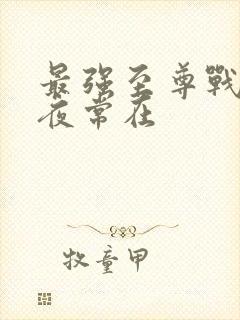 最强至尊戰
夜常在
牧童甲